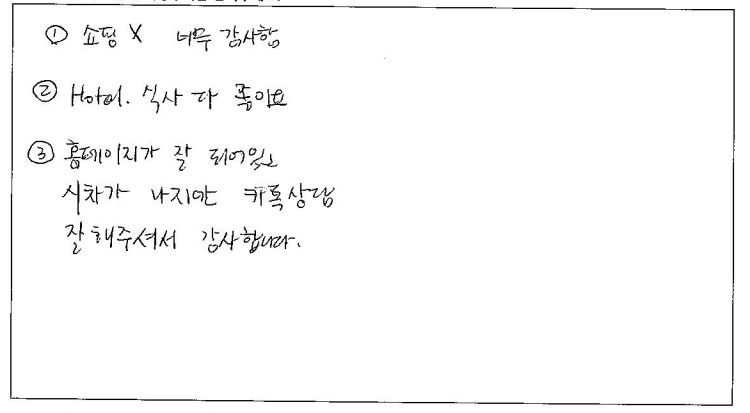 ① 쇼핑 X 너무 감사함
② Hotel. 식사 다 좋아요
③ 홈페이지가 잘 되어있고
시차가 나지만 카톡상담
잘 해주셔서 감사합니다.